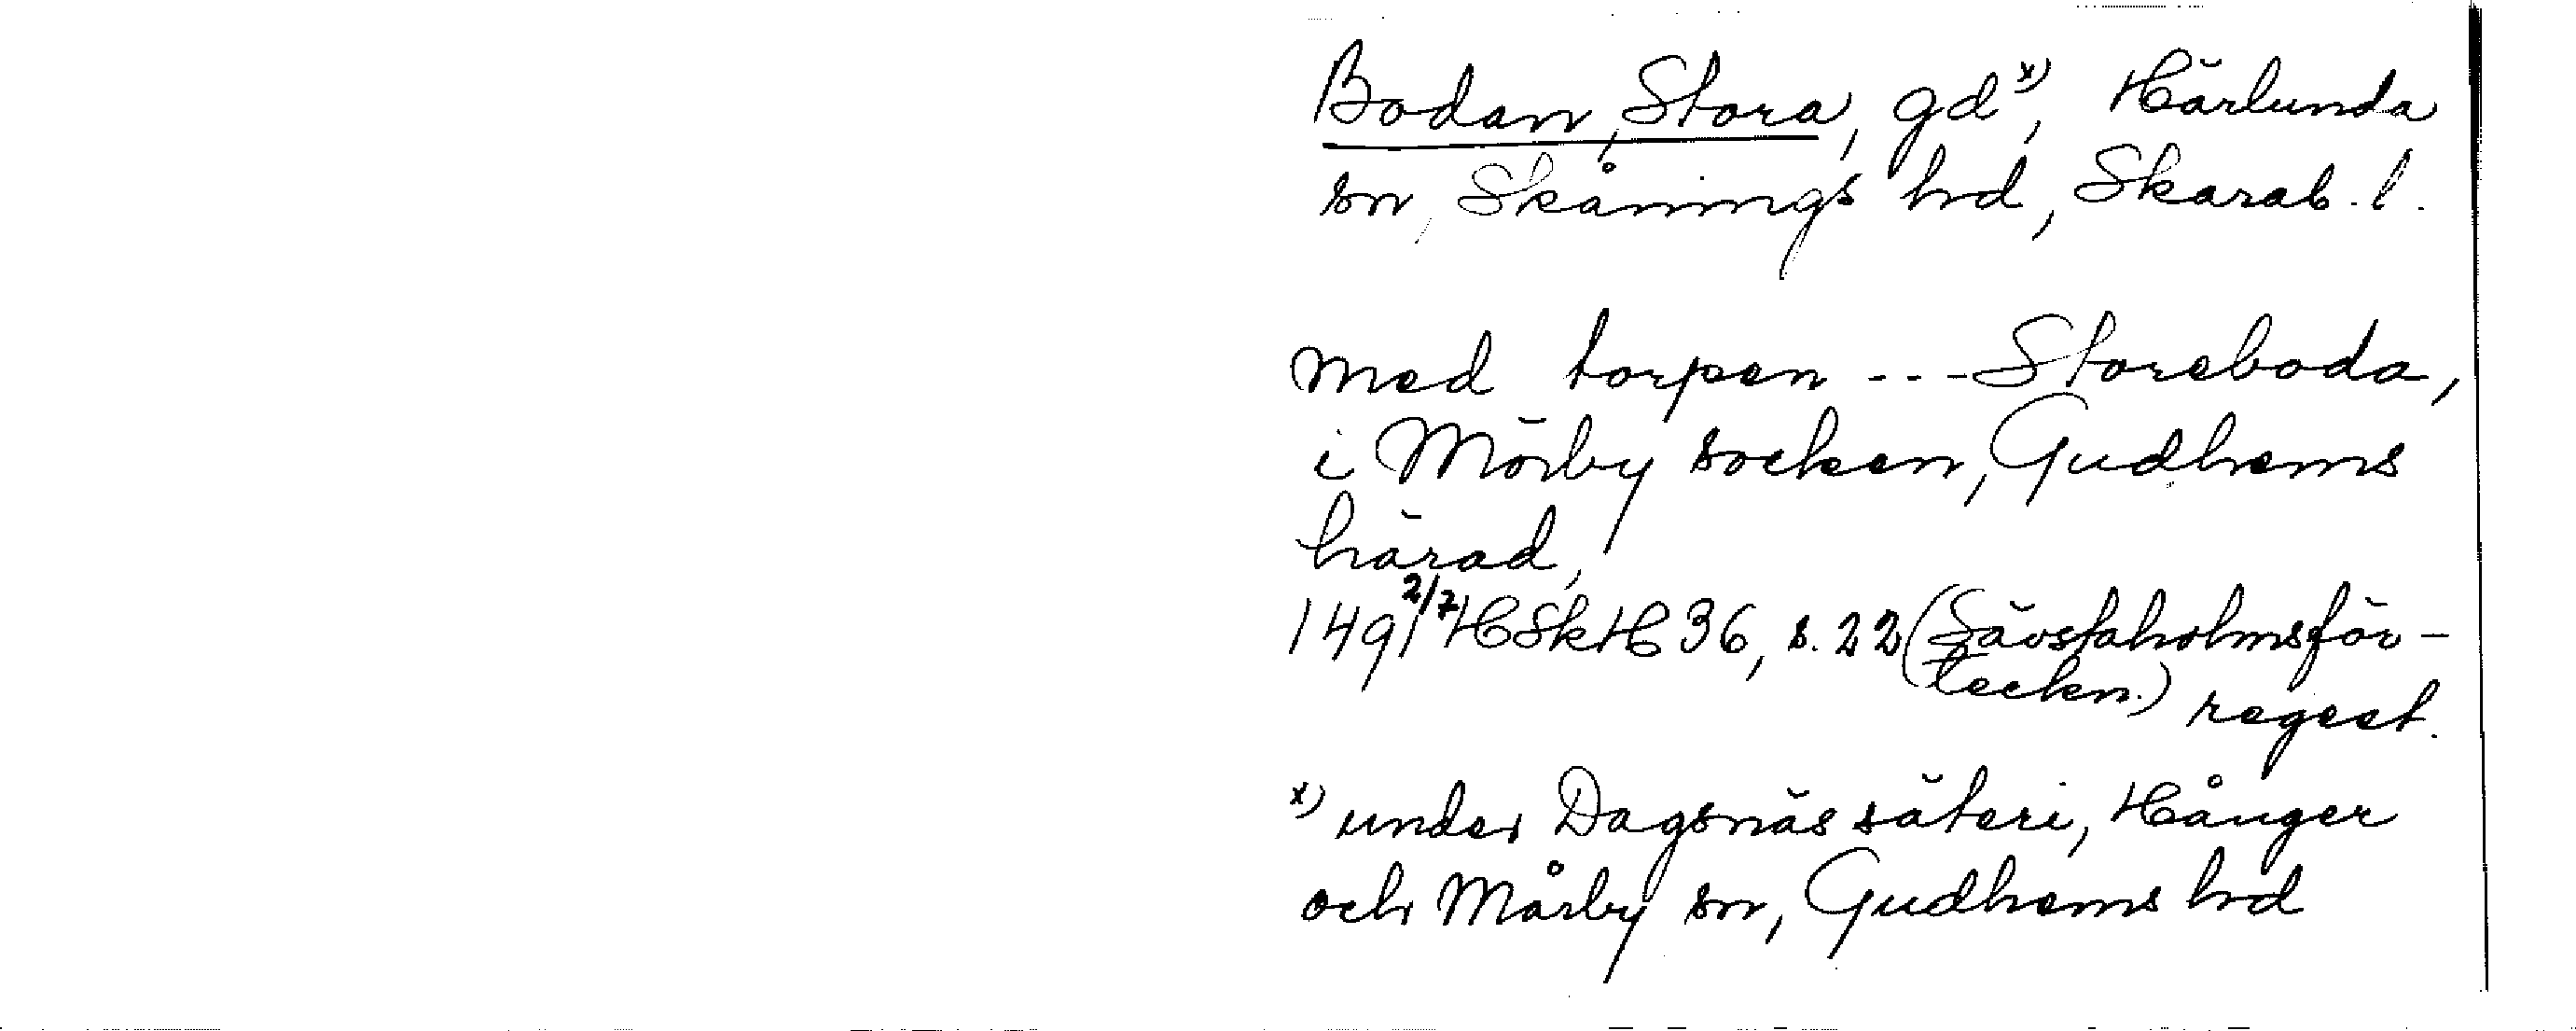 Bodan, Stora, gd x), Härlunda
sn, Skånings hd, Skarab. l.
med torpen --- Storeboda,
i Mörby socken, Gudhems
härad,
1491 2/7 HSkH 36, s. 22 (Sävstaholmsför-
teckn.) regest.
x) under Dagsnäs säteri, Hånger
och Mårby sn, Gudhems hd